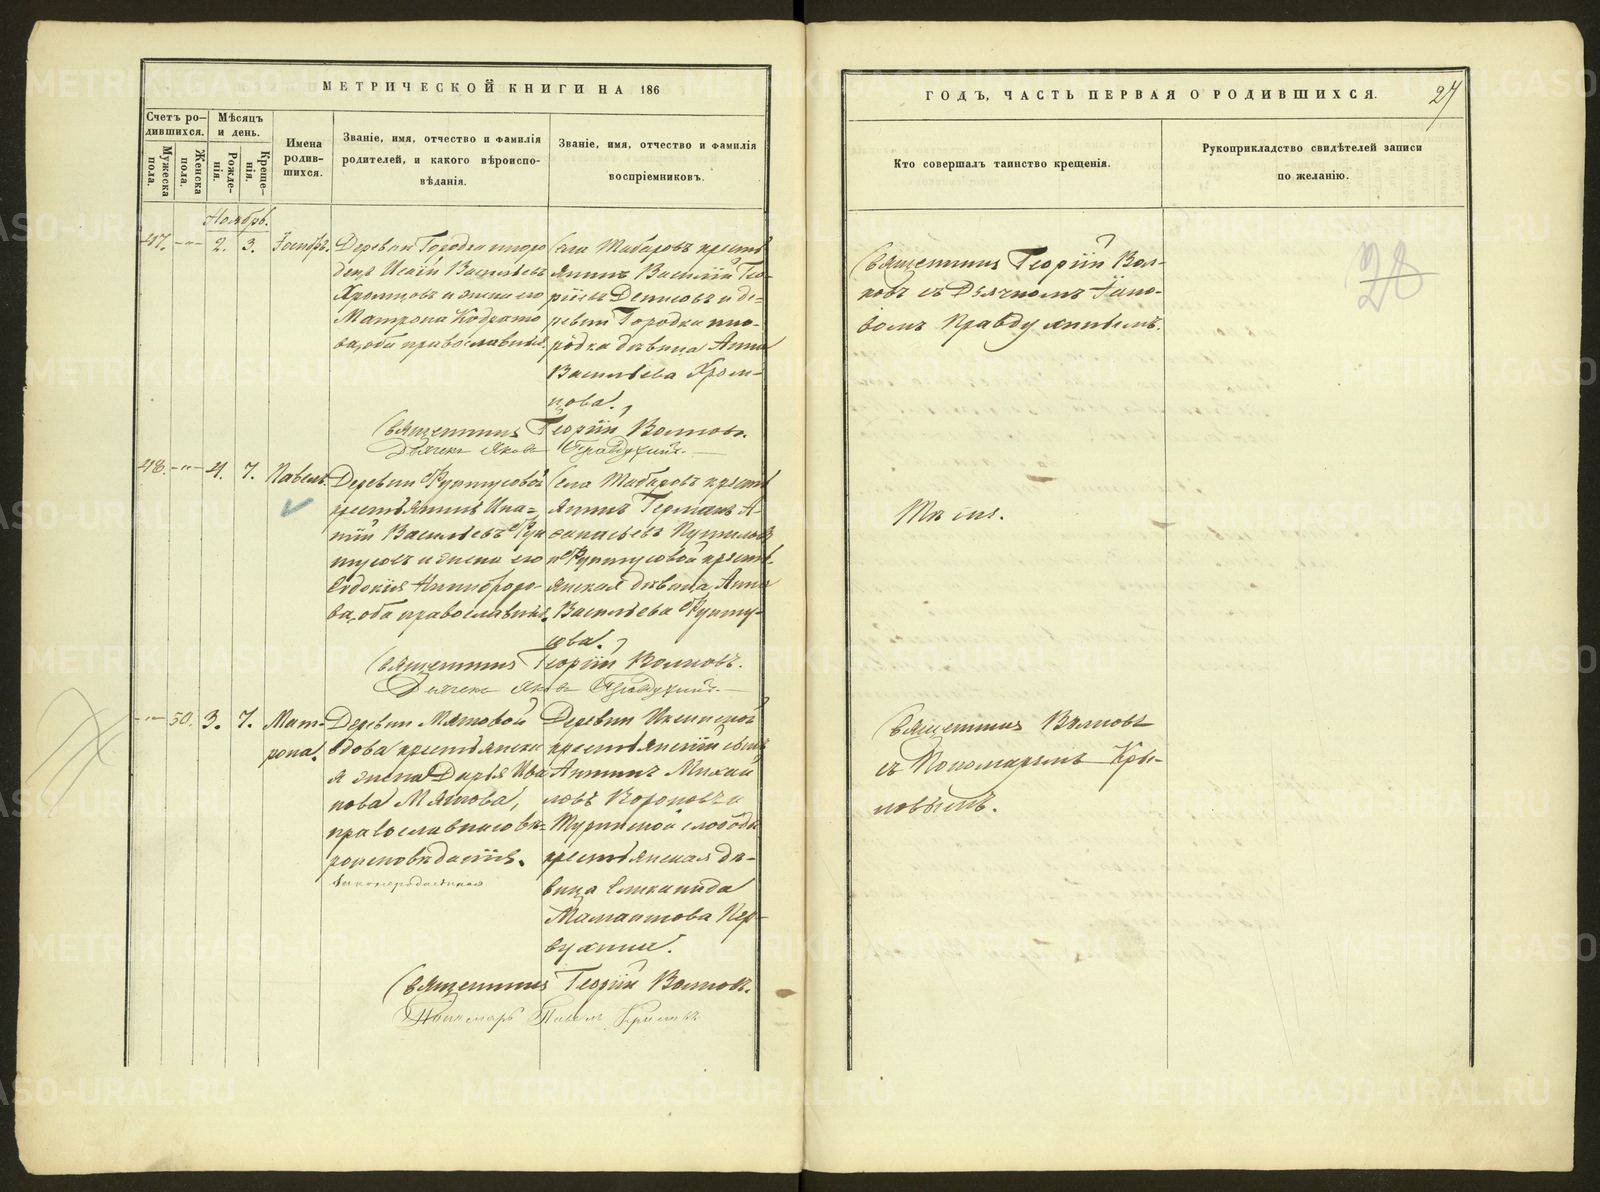 МЕТРИЧЕСКОЙ КНИГИ НА 186
Счетъ ро-
дившихся.
Мѣсяцъ
и день.
Мужеска
пола.
Женска
пола.
Рожде-
нія.
Креще-
нія.
Имена
родив-
шихся.
Званіе, имя, отчество и фамилія
родителей, и какого вѣроиспо-
вѣданія.
Званіе, имя, отчество и фамилія
воспріемниковъ.
Ноябрь.
47. -"- 2. 3.
Деревни Городка иноро
децъ Исаій Васильевъ
Хромцовъ и жена его
Матрона Кодрато
ва, оба православные.
Села Табаровъ кресть
янинъ Василій Гео-
ргіевъ Денисовъ и де-
ревни Городка ино-
родка дѣвица Анна
Васильева Хром-
цова.
Священникъ Георгій Волковъ.
Дьячекъ Яковъ Правдухинъ.
48. -"- 4. 7. Павелъ
Деревни Фунтусовой
крестьянинъ Ипа-
тій Васильевъ Фун
тусовъ и жена его
Евдокія Никифоро-
ва, оба православные.
Села Табаровъ кресть
янинъ Германъ А-
фанасьевъ Путиловъ
и Фунтусовой кресть
янская дѣвица Анна
Васильева Фунту-
сова.
Священникъ Георгій Волковъ.
Дьячекъ Яковъ Правдухинъ.
-"- 50. 3. 7. Мат-
рона.
Деревни Мятовой
вдова крестьянска
я жена Дарья Ива
нова Мятова,
православнаго вѣ-
роисповѣданія.
Незаконнорожденная
Деревни Икшинской
крестьянскій сынъ
Антипъ Михай
ловъ Вороновъ и
Туринской слободы
крестьянская дѣ-
вица Еликанида
Мамантова Пер-
вухина.
Священникъ Георгій Волковъ.
Пономарь Павелъ Крыловъ
ГОДЪ, ЧАСТЬ ПЕРВАЯ О РОДИВШИХСЯ.
27
Кто совершалъ таинство крещенія.
Рукоприкладство свидѣтелей записи
по желанію.
28
Священникъ Георгій Вол-
ковъ съ Дьячкомъ Яко-
вомъ Правдухинымъ.
Тѣ же.
Священникъ Волковъ
съ Пономаремъ Кры-
ловымъ.
METRIKI.GASO-URAL.RU